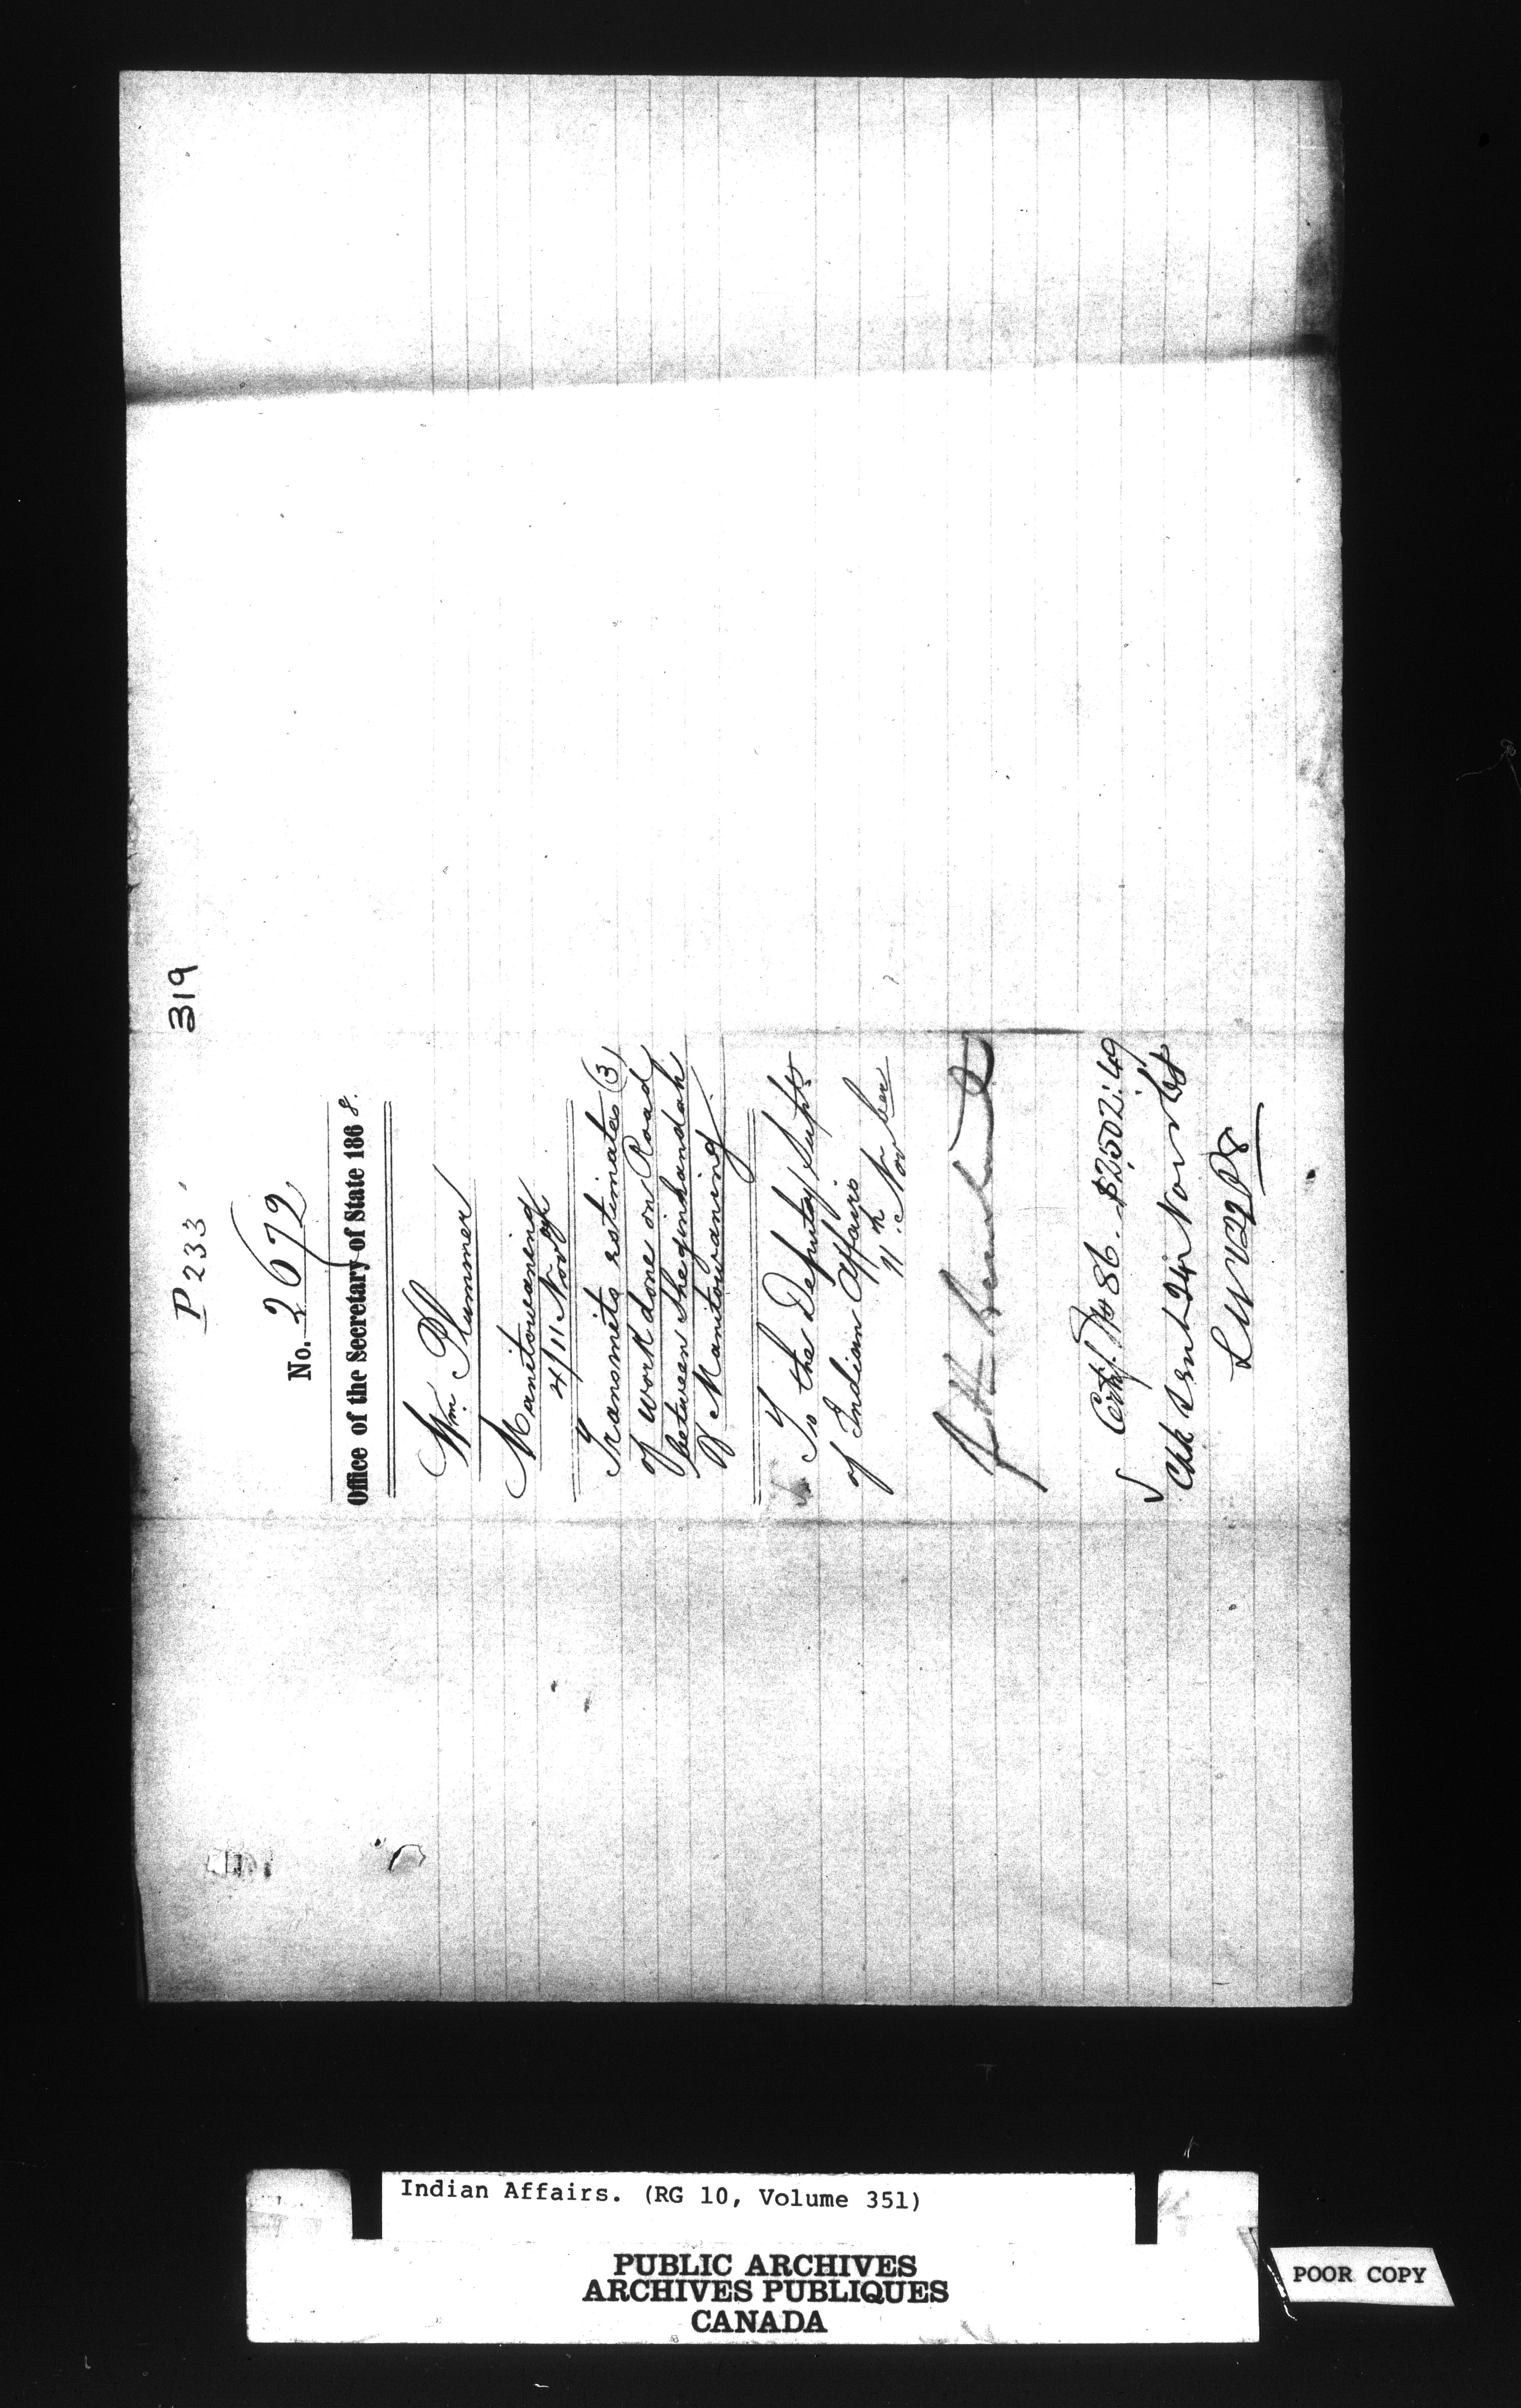 319
P 233
No. 2672
Office of the Secretary of State 1868.
Wm. Plummer
Manitowaning
4/11 Nov
Transmits estimates (3)
of work done on Road
between Sheguiandah
& Manitowaning
To the Deputy Supt.
of Indian Affairs
11th November
Certif. No 86. $2,502:49
Chk sent 24
Indian Affairs. (RG 10, Volume 351)
PUBLIC ARCHIVES
ARCHIVES PUBLIQUES
CANADA
POOR COPY